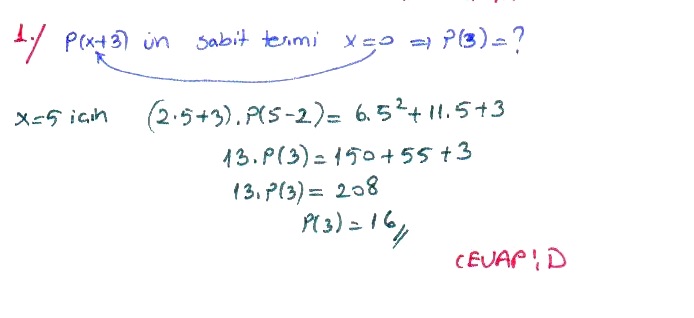 1./ P(x+3) ün sabit terimi x=0 ⇒ P(3)=?
x=5 için (2.5+3).P(5-2)= 6.5²+11.5+3
13.P(3)=150+55+3
13.P(3)= 208
P(3)=16//
CEVAP: D